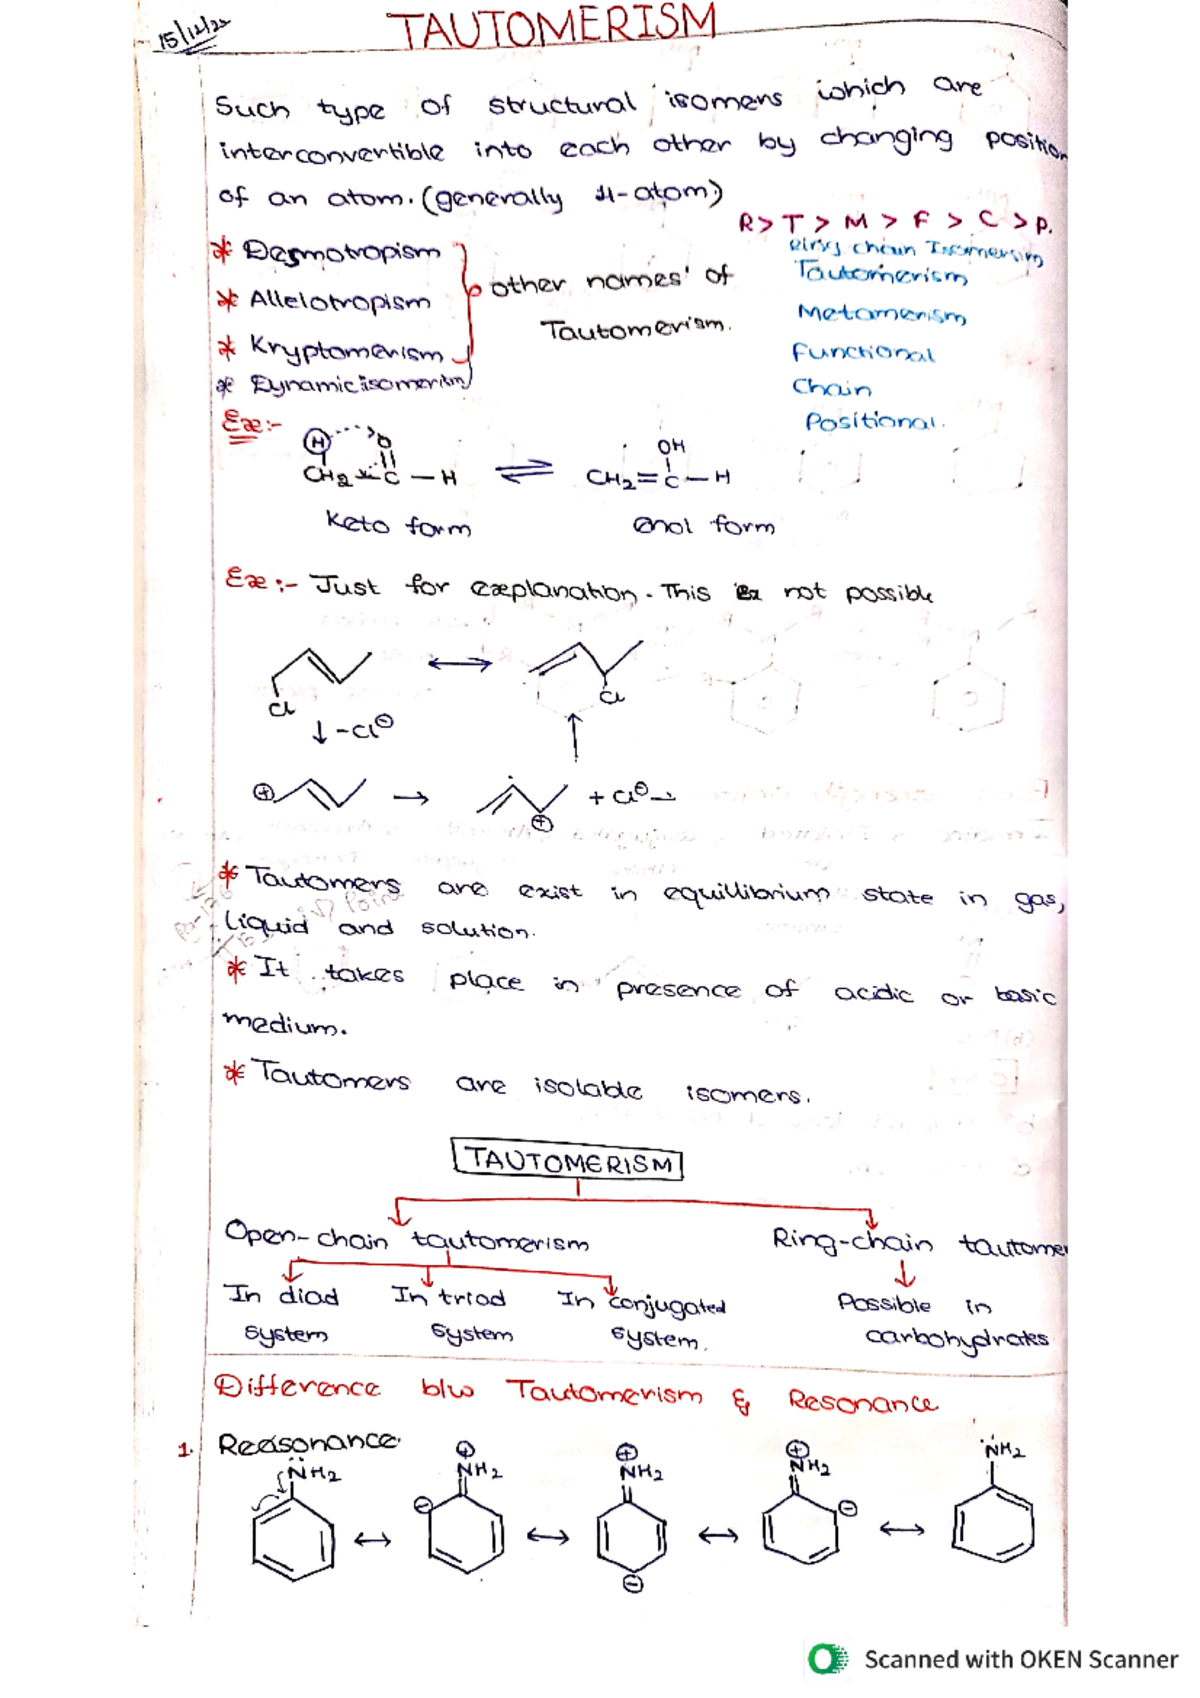 15/12/22
TAUTOMERISM
Such type of structural isomers which are
interconvertible into each other by changing position
of an atom. (generally H-atom)
R > T > M > F > C > P.
* Desmotropism
* Allelotropism
* Kryptomerism
* Dynamic isomerism
other names of
Tautomerism.
Ring chain Isomerism
Tautomerism
Metamerism
Functional
Chain
Positional.
Ex:-
H O
CH2 - C - H ⇌ CH2 = C - H
OH
Keto form enol form
Ex :- Just for explanation. This is not possible
Cl ↔ Cl
↓ -Cl⊖ ↑
⊕ → ⊕ + Cl⊖ →
* Tautomers are exist in equillibrium state in gas,
liquid and solution.
* It takes place in presence of acidic or basic
medium.
* Tautomers are isolable isomers.
TAUTOMERISM
Open-chain tautomerism Ring-chain tautomer
In diad system
In triad system
In conjugated system.
Possible in
carbohydrates
Difference b/w Tautomerism & Resonance
1. Reasonance
N̈H2 ↔ ⊕NH2 ⊖ ↔ ⊕NH2 ⊖ ↔ ⊕NH2 ⊖ ↔ N̈H2
Scanned with OKEN Scanner